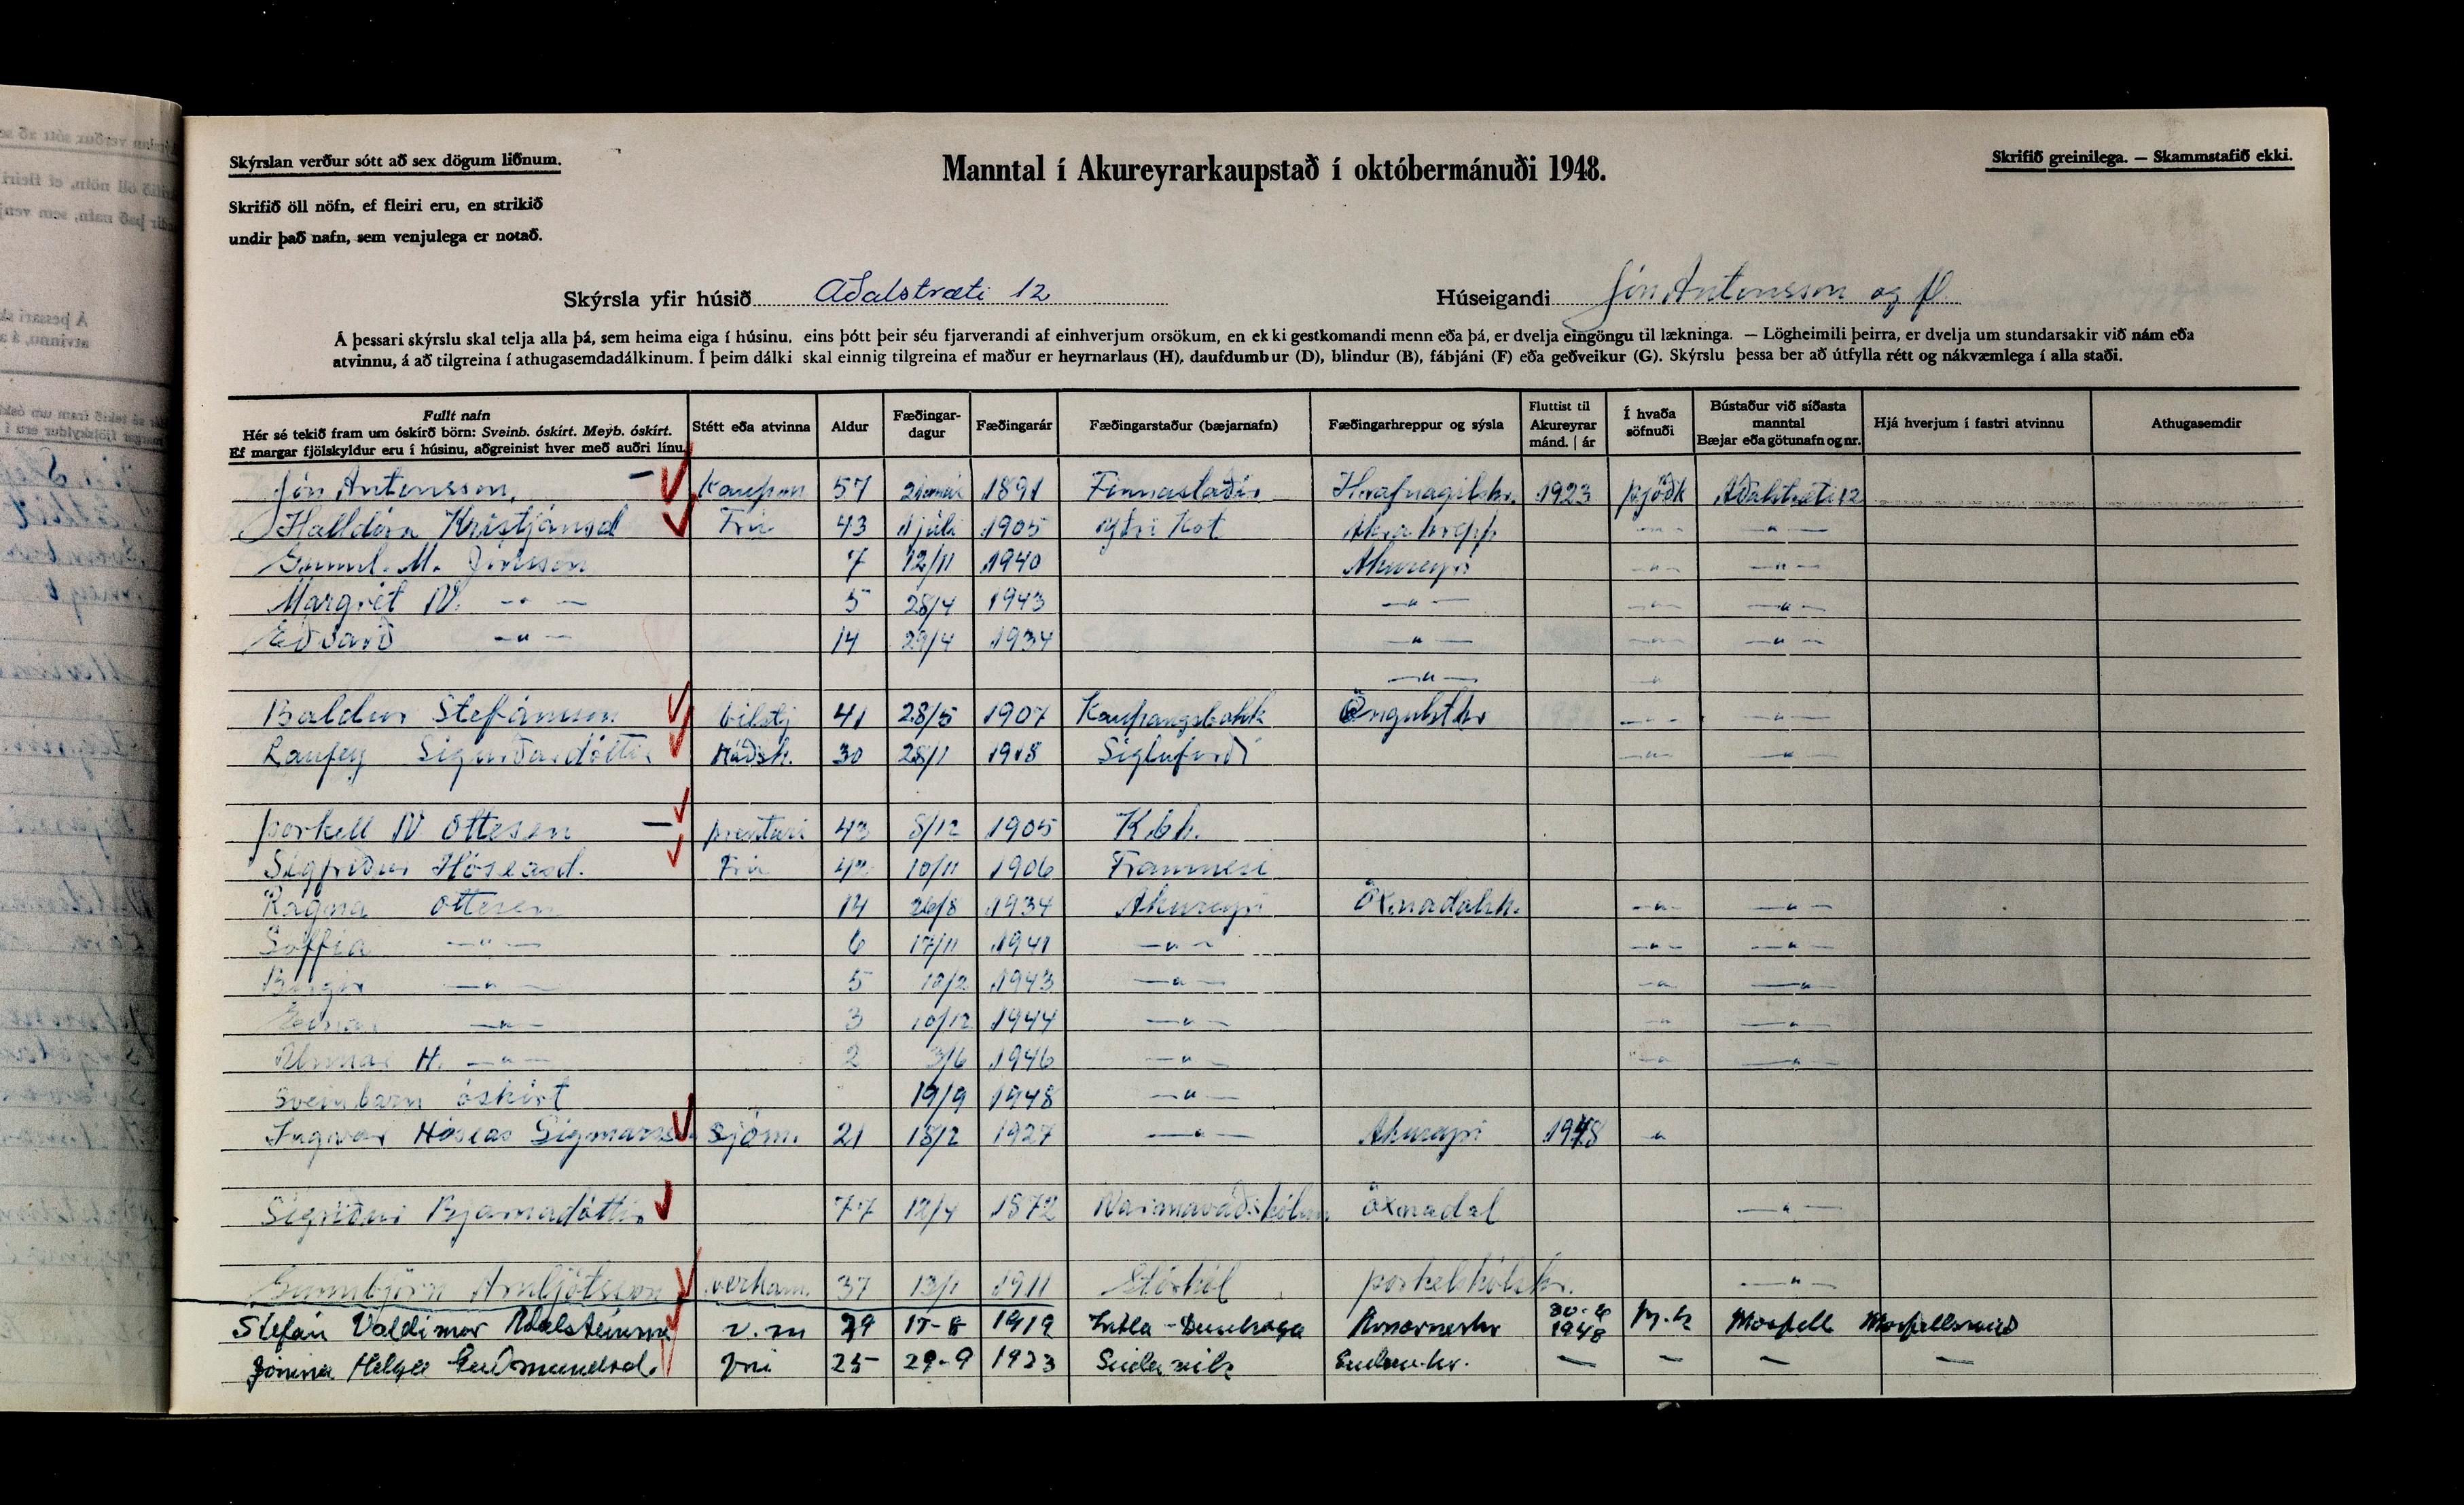 Skýrslan verður sótt að sex dögum liðnum.
Manntal í Akureyrarkaupstað í októbermánuði 1948.
Skrifið greinilega. — Skammstafið ekki.
Skrifið öll nöfn, ef fleiri eru, en strikið
undir það nafn, sem venjulega er notað.
Skýrsla yfir húsið Aðalstræti 12 Húseigandi Jón Antonsson og fl
Á þessari skýrslu skal telja alla þá, sem heima eiga í húsinu, eins þótt þeir séu fjarverandi af einhverjum orsökum, en ekki gestkomandi menn eða þá, er dvelja eingöngu til lækninga. — Lögheimili þeirra, er dvelja um stundarsakir við nám eða
atvinnu, á að tilgreina í athugasemdadálkinum. Í þeim dálki skal einnig tilgreina ef maður er heyrnarlaus (H), daufdumbur (D), blindur (B), fábjáni (F) eða geðveikur (G). Skýrslu þessa ber að útfylla rétt og nákvæmlega í alla staði.
Fullt nafn
Hér sé tekið fram um óskírð börn: Sveinb. óskírt. Meyb. óskírt.
Ef margar fjölskyldur eru í húsinu, aðgreinist hver með auðri línu.
Stétt eða atvinna
Aldur
Fæðingar-
dagur
Fæðingarár
Fæðingarstaður (bæjarnafn)
Fæðingarhreppur og sýsla
Fluttist til
Akureyrar
mánd. | ár
Í hvaða
söfnuði
Bústaður við síðasta
manntal
Bæjar eða götunafn og nr.
Hjá hverjum í fastri atvinnu
Athugasemdir
Jón Antonsson, Kaupm 57 1891 Finnastaðir Hrafnagilshr. 1923 þjóðk Aðalstræti 12
Halldóra Kristjánsd Frú 43 1 júlí 1905 Ytri Kot Akrahrepp —"— —"—
Gunnl. M. Jónsson 7 12/11 1940 Akureyri —"— —"—
Margrét —"— 5 28/4 1943 —"— —"— —"—
Eðvarð —"— 14 29/4 1934 —"— —"— —"—
—"— —"—
Baldur Stefánsson bílstj 41 28/5 1907 Kaupangsbakk Öngulsthr —"— —"—
Laufey Sigurðardóttir Ráðsk. 30 28/1 1918 Siglufirði —"— —"—
Þorkell V Ottesen prentari 43 8/12 1905 Kbh.
Sigfríður Hósead. Frú 42 10/11 1906 Framnesi
Ragna Ottesen 14 26/8 1934 Akureyri Öxnadalh. —"— —"—
Soffía —"— 6 17/11 1941 —"— —"— —"—
Birgir —"— 5 10/2 1943 —"— —"— —"—
—"— 3 10/12 1944 —"— —"— —"—
H. —"— 2 3/6 1946 —"— —"— —"—
Sveinbarn óskírt 19/9 1948 —"—
Ingvar Hóseas Sigmarss. Sjóm. 21 18/2 1927 —"— Akureyri 1948 —"—
Sigríður Bjarnadóttir 77 12/4 1872 Öxnadal —"—
Gunnbjörn Arnljótsson verkam. 37 13/1 1911 Stórhól Þorkelshólshr. —"—
Stefán Valdimar v.m 29 17-8 1919 Litla-Dunhaga Arnarneshr 30-6 1948 þ.k Mosfell
Jónína Helga Guðmundsd. frú 25 29-9 1923 Súðavík — — — —